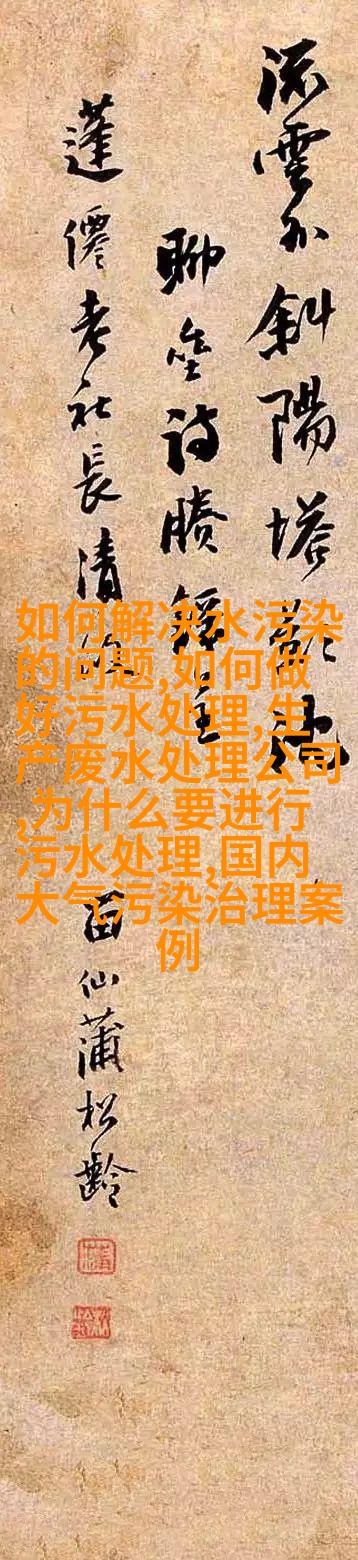 流雲外斜陽塔
詩賸
蓬僊老社長清
仙蒲松齡
如何解决水污染
的问题,如何做
好污水处理,生
产废水处理公司
,为什么要进行
污水处理,国内
大气污染治理案
例